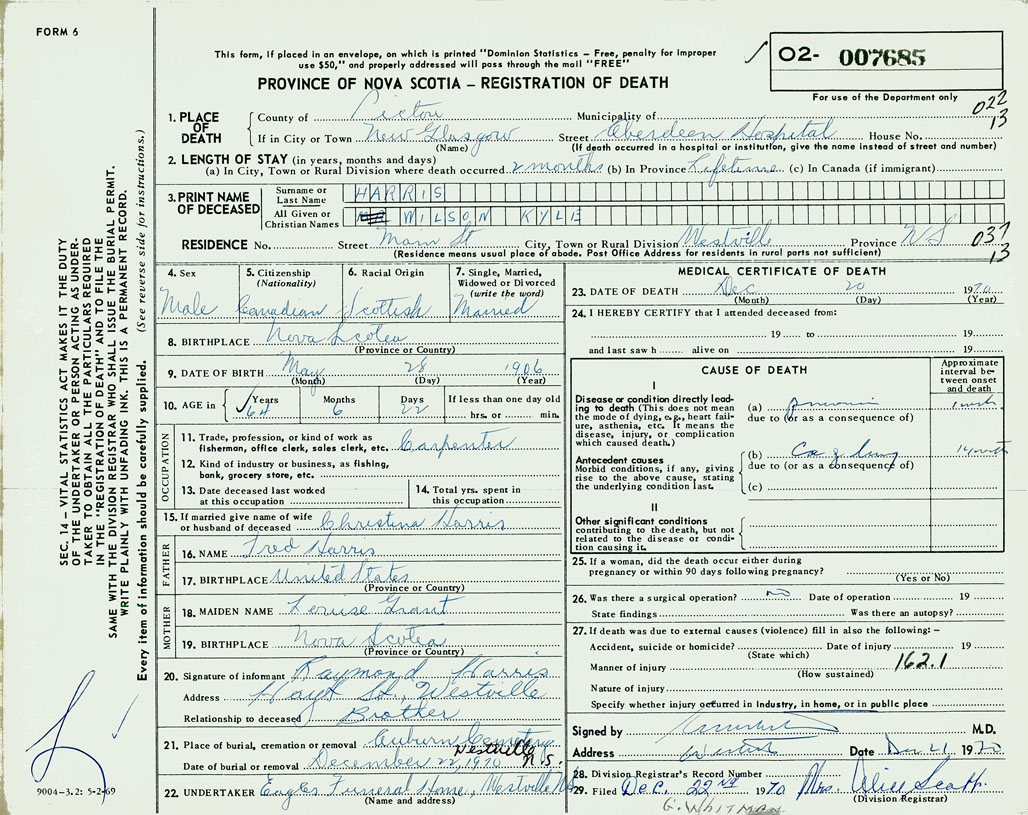 FORM 6
This form, if placed in an envelope, on which is printed "Dominion Statistics – Free, penalty for improper
use $50," and properly addressed will pass through the mail "FREE"
O2- 007685
PROVINCE OF NOVA SCOTIA – REGISTRATION OF DEATH
For use of the Department only
022
13
1. PLACE OF DEATH
County of Pictou Municipality of
If in City or Town New Glasgow Street Aberdeen Hospital House No.
(Name) (If death occurred in a hospital or institution, give the name instead of street and number)
2. LENGTH OF STAY (in years, months and days)
(a) In City, Town or Rural Division where death occurred 2 months (b) In Province Lifetime (c) In Canada (if immigrant)
3. PRINT NAME OF DECEASED
Surname or Last Name HARRIS
All Given or Christian Names WILSON KYLE
RESIDENCE No. Street Main St City, Town or Rural Division Westville Province NS
037
13
(Residence means usual place of abode. Post Office Address for residents in rural parts not sufficient)
4. Sex
Male
5. Citizenship
(Nationality)
Canadian
6. Racial Origin
Scottish
7. Single, Married,
Widowed or Divorced
(write the word)
Married
8. BIRTHPLACE Nova Scotia
(Province or Country)
9. DATE OF BIRTH May 28 1906
(Month) (Day) (Year)
10. AGE in
Years Months Days If less than one day old
64 6 22 hrs. or min.
OCCUPATION
11. Trade, profession, or kind of work as
fisherman, office clerk, sales clerk, etc. Carpenter
12. Kind of industry or business, as fishing,
bank, grocery store, etc.
13. Date deceased last worked
at this occupation
14. Total yrs. spent in
this occupation
15. If married give name of wife
or husband of deceased Christina Harris
FATHER
16. NAME Fred Harris
17. BIRTHPLACE United States
(Province or Country)
MOTHER
18. MAIDEN NAME Louise Grant
19. BIRTHPLACE Nova Scotia
(Province or Country)
20. Signature of informant Raymond Harris
Address St., Westville
Relationship to deceased Brother
21. Place of burial, cremation or removal Auburn Cemetery
Westville N.S.
Date of burial or removal December 22, 1970
22. UNDERTAKER Eagles Funeral Home, Westville NS
(Name and address)
MEDICAL CERTIFICATE OF DEATH
23. DATE OF DEATH Dec 20 1970
(Month) (Day) (Year)
24. I HEREBY CERTIFY that I attended deceased from:
19 to 19
and last saw h alive on 19
CAUSE OF DEATH
Approximate
interval be-
tween onset
and death
I
Disease or condition directly lead-
ing to death (This does not mean
the mode of dying, e.g., heart fail-
ure, asthenia, etc. It means the
disease, injury, or complication
which caused death.)
(a)
due to (or as a consequence of)
Antecedent causes
Morbid conditions, if any, giving
rise to the above cause, stating
the underlying condition last.
(b) Ca of lung
due to (or as a consequence of)
(c)
II
Other significant conditions
contributing to the death, but not
related to the disease or condi-
tion causing it.
25. If a woman, did the death occur either during
pregnancy or within 90 days following pregnancy?
(Yes or No)
26. Was there a surgical operation? no Date of operation 19
State findings Was there an autopsy?
27. If death was due to external causes (violence) fill in also the following: –
Accident, suicide or homicide? Date of injury 19
(State which)
162.1
Manner of injury
(How sustained)
Nature of injury
Specify whether injury occurred in industry, in home, or in public place
Signed by M.D.
Address Westville Date Dec 21 1970
28. Division Registrar's Record Number
29. Filed Dec. 22nd 1970 Mrs. Alice Scott
(Division Registrar)
G. WHITMAN
SEC. 14 – VITAL STATISTICS ACT MAKES IT THE DUTY
OF THE UNDERTAKER OR PERSON ACTING AS UNDER-
TAKER TO OBTAIN ALL THE PARTICULARS REQUIRED
IN THE "REGISTRATION OF DEATH" AND TO FILE THE
SAME WITH THE DIVISION REGISTRAR WHO SHALL ISSUE THE BURIAL PERMIT.
WRITE PLAINLY WITH UNFADING INK. THIS IS A PERMANENT RECORD.
Every item of information should be carefully supplied. (See reverse side for instructions.)
9004-3.2: 5-2-69